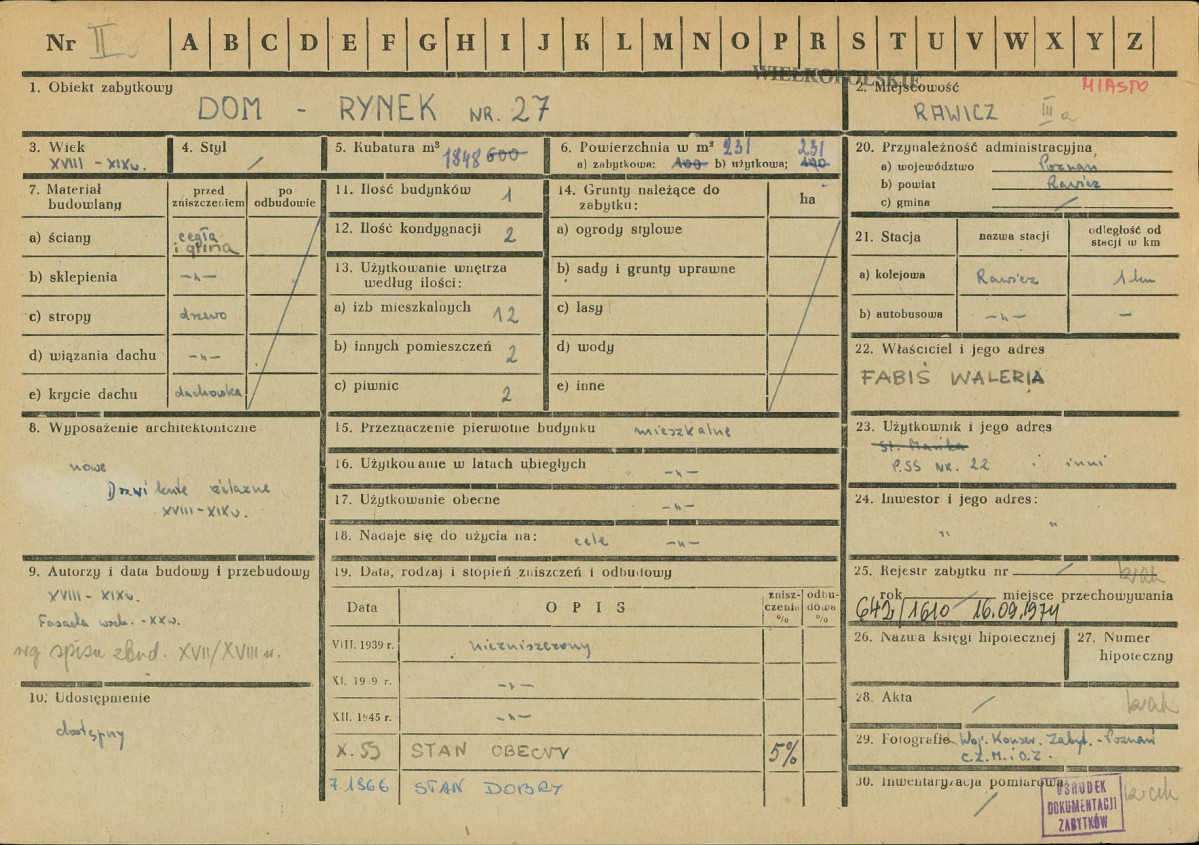 Nr II A B C D E F G H I J K L M N O P R S T U V W X Y Z
WIELKOPOLSKIE
1. Obiekt zabytkowy
DOM - RYNEK NR. 27
2. Miejscowość MIASTO
RAWICZ III a
3. Wiek
XVIII - XIX w.
4. Styl /
5. Kubatura m³ 1848 600
6. Powierzchnia w m² 231 231
a) zabytkowa: 100 b) użytkowa: 100
20. Przynależność administracyjna
a) województwo Poznań
b) powiat Rawicz
c) gmina /
7. Materiał budowlany
przed zniszczeniem
po odbudowie
a) ściany cegła i glina
b) sklepienia -"-
c) stropy drzewo
d) wiązania dachu -"-
e) krycie dachu dachówka
11. Ilość budynków 1
12. Ilość kondygnacji 2
13. Użytkowanie wnętrza
według ilości:
a) izb mieszkalnych 12
b) innych pomieszczeń 2
c) piwnic 2
14. Grunty należące do
zabytku:
ha
a) ogrody stylowe
b) sady i grunty uprawne
c) lasy
d) wody
e) inne
21. Stacja
nazwa stacji
odległość od
stacji w km
a) kolejowa Rawicz 1 km
b) autobusowa -"- -
22. Właściciel i jego adres
FABIŚ WALERIA
8. Wyposażenie architektoniczne
nowe
Drzwi kute żelazne
XVIII - XIX w.
15. Przeznaczenie pierwotne budynku mieszkalne
16. Użytkowanie w latach ubiegłych -"-
17. Użytkowanie obecne -"-
18. Nadaje się do użycia na: cele -"-
23. Użytkownik i jego adres
PSS NR. 22 i inni
24. Inwestor i jego adres:
" "
9. Autorzy i data budowy i przebudowy
XVIII - XIX w.
Fasada wsch. - XX w.
wg spisu zbud. XVII/XVIII w.
10. Udostępnienie
dostępny
19. Data, rodzaj i stopień zniszczeń i odbudowy
Data
OPIS
znisz-
czenia
%
odbu-
dowa
%
VIII. 1939 r. niezniszczony
XI. 1919 r. -"-
XII. 1945 r. -"-
X. 59 STAN OBECNY 5%
7.1966 STAN DOBRY
25. Rejestr zabytku nr / brak
rok / miejsce przechowywania
642/1610 16.09.1974
26. Nazwa księgi hipotecznej
27. Numer
hipoteczny
28. Akta / brak
29. Fotografie Woj. Konser. Zabyt. - Poznań
C.Z.M. i O.Z.
30. Inwentaryzacja pomiarowa
/ brak
OŚRODEK
DOKUMENTACJI
ZABYTKÓW